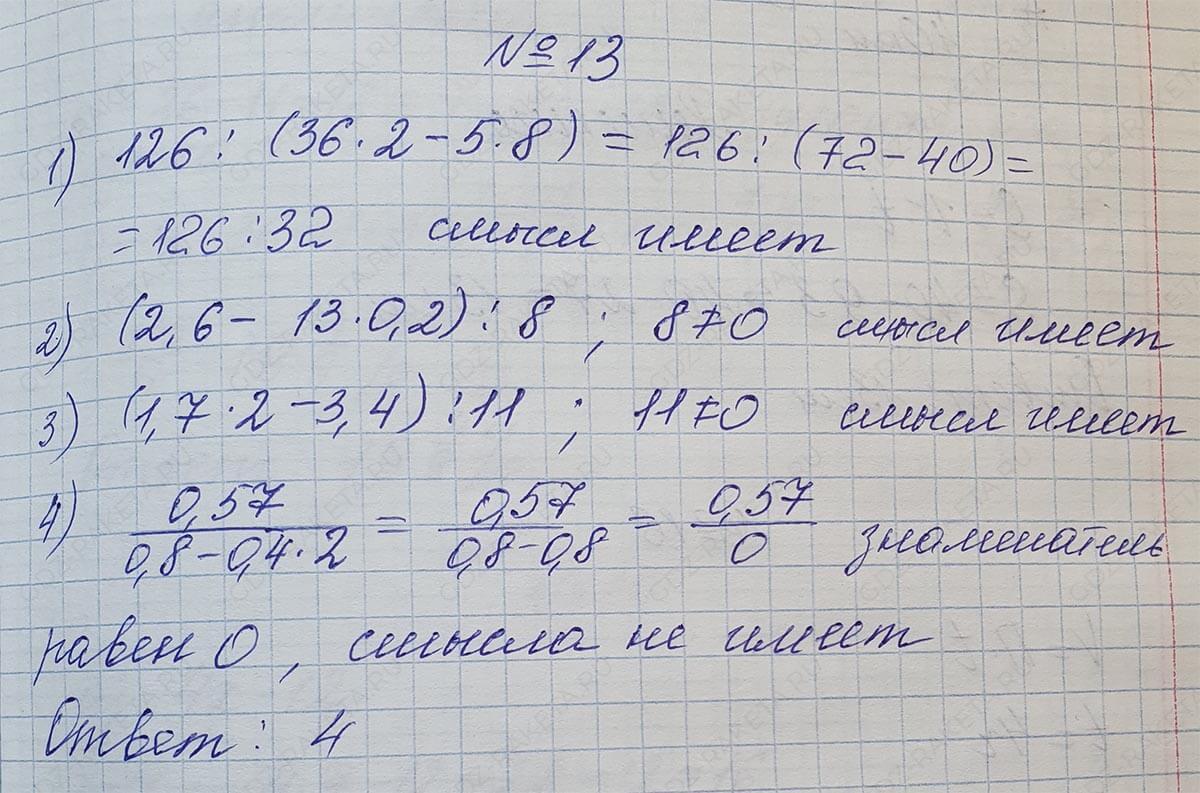 №13
1) 126 : (36·2-5·8) = 126 : (72-40) =
= 126 : 32 смысл имеет
2) (2,6 - 13·0,2) : 8 ; 8≠0 смысл имеет
3) (1,7·2-3,4) : 11 ; 11≠0 смысл имеет
4) 0,57/(0,8-0,4·2) = 0,57/(0,8-0,8) = 0,57/0 знаменатель
равен 0, смысла не имеет
Ответ: 4